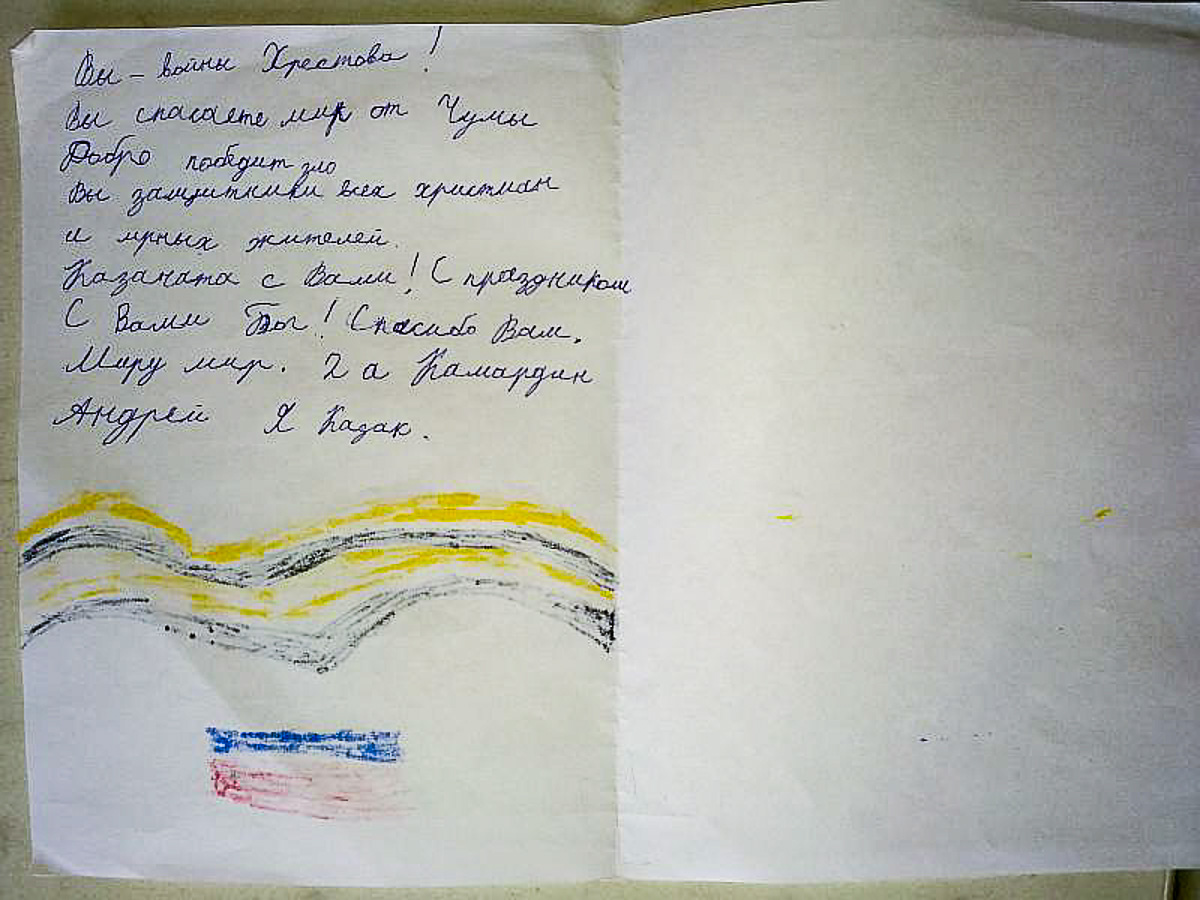 Вы - войны Хрестова!
Вы спасаете мир от Чумы
Добро победит зло
Вы защитники всех христиан
и мрных жителей.
Казачата с Вами! С праздником
С Вами Бог! Спасибо Вам.
Миру мир. 2 а Камардин
Андрей Я Казак.